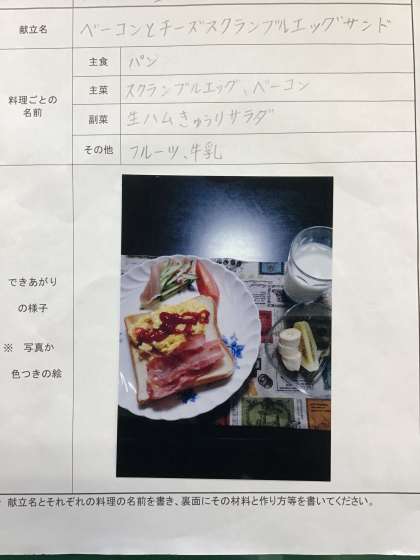 献立名 ベーコンとチーズスクランブルエッグサンド
料理ごとの名前
主食 パン
主菜 スクランブルエッグ、ベーコン
副菜 生ハムきゅうりサラダ
その他 フルーツ、牛乳
できあがり
の様子
※ 写真か
色つきの絵
献立名とそれぞれの料理の名前を書き、裏面にその材料と作り方等を書いてください。